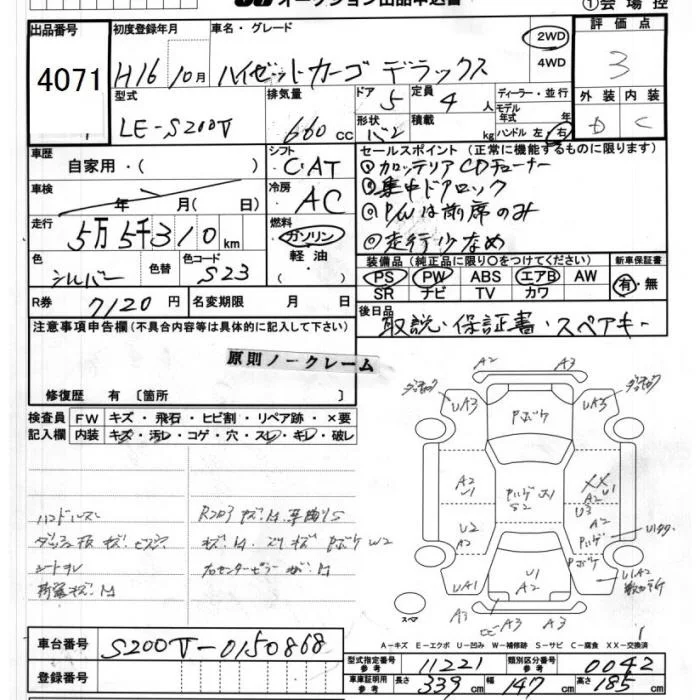 オークション出品申込書
①会場控
出品番号
4071
初度登録年月
H16 10月
車名・グレード
ハイゼットカーゴ デラックス
2WD
4WD
評価点
3
型式
LE-S200V
排気量
660 cc
ドア
5
定員
4 人
形状
バン
積載
kg
ディーラー・並行
モデル年式 年
ハンドル 左・右
外装 内装
D C
車歴
自家用・( )
シフト
C・AT
車検
年 月( 日)
冷房
AC
走行
5万5千310km
燃料
ガソリン
軽油
( )
色
シルバー
色替
色コード
S23
R券
7120円
名変期限 月 日
セールスポイント(正常に機能するものに限ります)
①カロッテリアCDチューナー
②集中ドアロック
③P/Wは前席のみ
④走行少なめ
装備品(純正品に限り○をつけてください)
新車保証書
PS PW ABS エアB AW
SR ナビ TV カワ
有・無
後日品
取説・保証書・スペアキー
注意事項申告欄(不具合内容等は具体的に記入して下さい)
原則ノークレーム
修復歴 有〔箇所 〕
検査員記入欄
FW キズ・飛石・ヒビ割・リペア跡・×要
内装 キズ・汚レ・コゲ・穴・スレ・キレ・破レ
ハンドルスレ
シートヨレ
A2 A3
UA3 UA3
Pボケ
A2
U1
XX
A2
U1
U3
U2
A2
A2
S2
UA1
U1
A2
U1A2
A3
A3
A3
スペア
A-キズ E-エクボ U-凹み W-補修跡 S-サビ C-腐食 XX-交換済
車台番号
S200V-0150868
登録番号
型式指定番号
参考
11221
類別区分番号
参考
0042
車庫証明用
参考
長さ 339 cm 幅 147 cm 高さ 185 cm